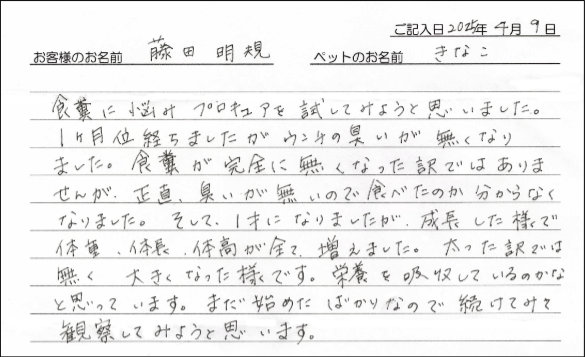 ご記入日 2025年 4月 9日
お客様のお名前 藤田 明規 ペットのお名前 きなこ
食糞に悩み プロキュアを 試してみようと思いました。
1ヶ月位 経ちましたが ウンチの臭いが 無くなり
ました。食糞が 完全に 無くなった訳ではありま
せんが、正直、臭いが無いので食べたのか 分からなく
なりました。そして、1才になりましたが、成長した様で
体重、体長、体高が全て、増えました。太った訳では
無く 大きくなった様です。栄養を吸収しているのかな
と思っています。まだ始めた ばかりなので 続けてみて
観察してみようと思います。